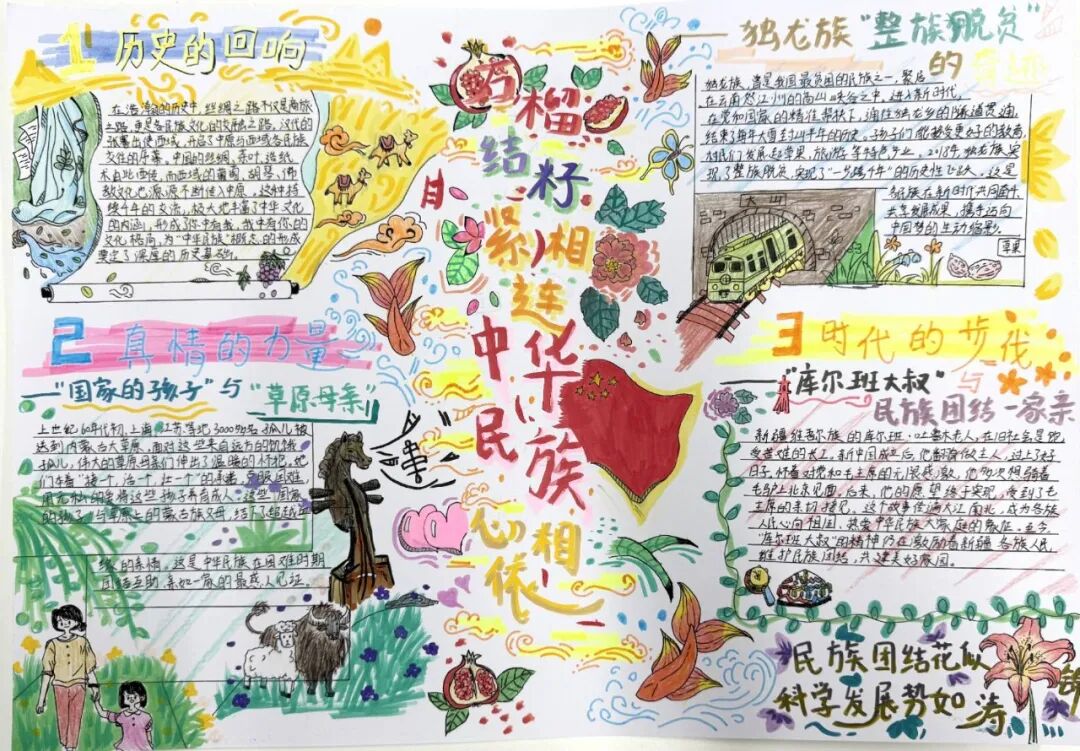 1 历史的回响
在浩瀚的历史中，丝绸之路不仅是商旅
之路，更是各民族文化的交融之路。汉代的
张骞出使西域，开启了中原与西域各民族
交往的序幕，中国的丝绸、茶叶、造纸
术由此西传，而西域的葡萄、胡琴、佛
教文化也源源不断传入中原，这种持
续千年的交流，极大地丰富了中华文化
的内涵，形成了你中有我，我中有你的
文化格局，为“中华民族”概念的形成
奠定了深厚的历史基础。
2 真情的力量
——“国家的孩子”与“草原母亲”
上世纪60年代初，上海、江苏等地3000多名孤儿被
达到内蒙古大草原，面对这些来自远方的饥饿
孤儿，伟大的草原母亲们伸出了温暖的怀抱，她
们本着“接一个，活一个，壮一个”的承诺，克服困难
用无私的爱将这些孩子养育成人，这些“国家
的孩子”与草原上的蒙古族父母，结下了超越
缘的亲情，这是中华民族在困难时期
团结互助、亲如一家的最感人见证。
石榴
结籽
紧相
连
中华
民族
心相
依
——独龙族“整族脱贫”
的奇迹
独龙族，曾是我国最贫困的民族之一，聚居
在云南怒江州的高山峡谷之中，进入新时代，
在党和国家的精准帮扶下，通往独龙乡的隧道贯通，
结束了每年大雪封山半年的历史，孩子们能接受更好的教育，
村民们发展起草果、旅游等特色产业。2018年，独龙族实
现了整族脱贫，实现了“一步跨千年”的历史性飞跃，这是
各民族在新时代共同奋斗、
共享发展成果，携手迈向
中国梦的生动缩影。
草果
3 时代的步伐
——“库尔班大叔”与
民族团结一家亲
新疆维吾尔族的库尔班·吐鲁木老人，在旧社会是饱
受苦难的长工，新中国成立后，他翻身做主人，过上了好
日子，怀着对党和毛主席的无限感激，他多次想骑着
毛驴上北京见面，后来，他的愿望终于实现，受到了毛
主席的亲切接见，这个故事传遍大江南北，成为各族
人民心向祖国，热爱中华民族大家庭的象征。至今，
“库尔班大叔”的精神仍在激励着新疆各族人民，
维护民族团结，共建美好家园。
民族团结花似锦
科学发展势如涛